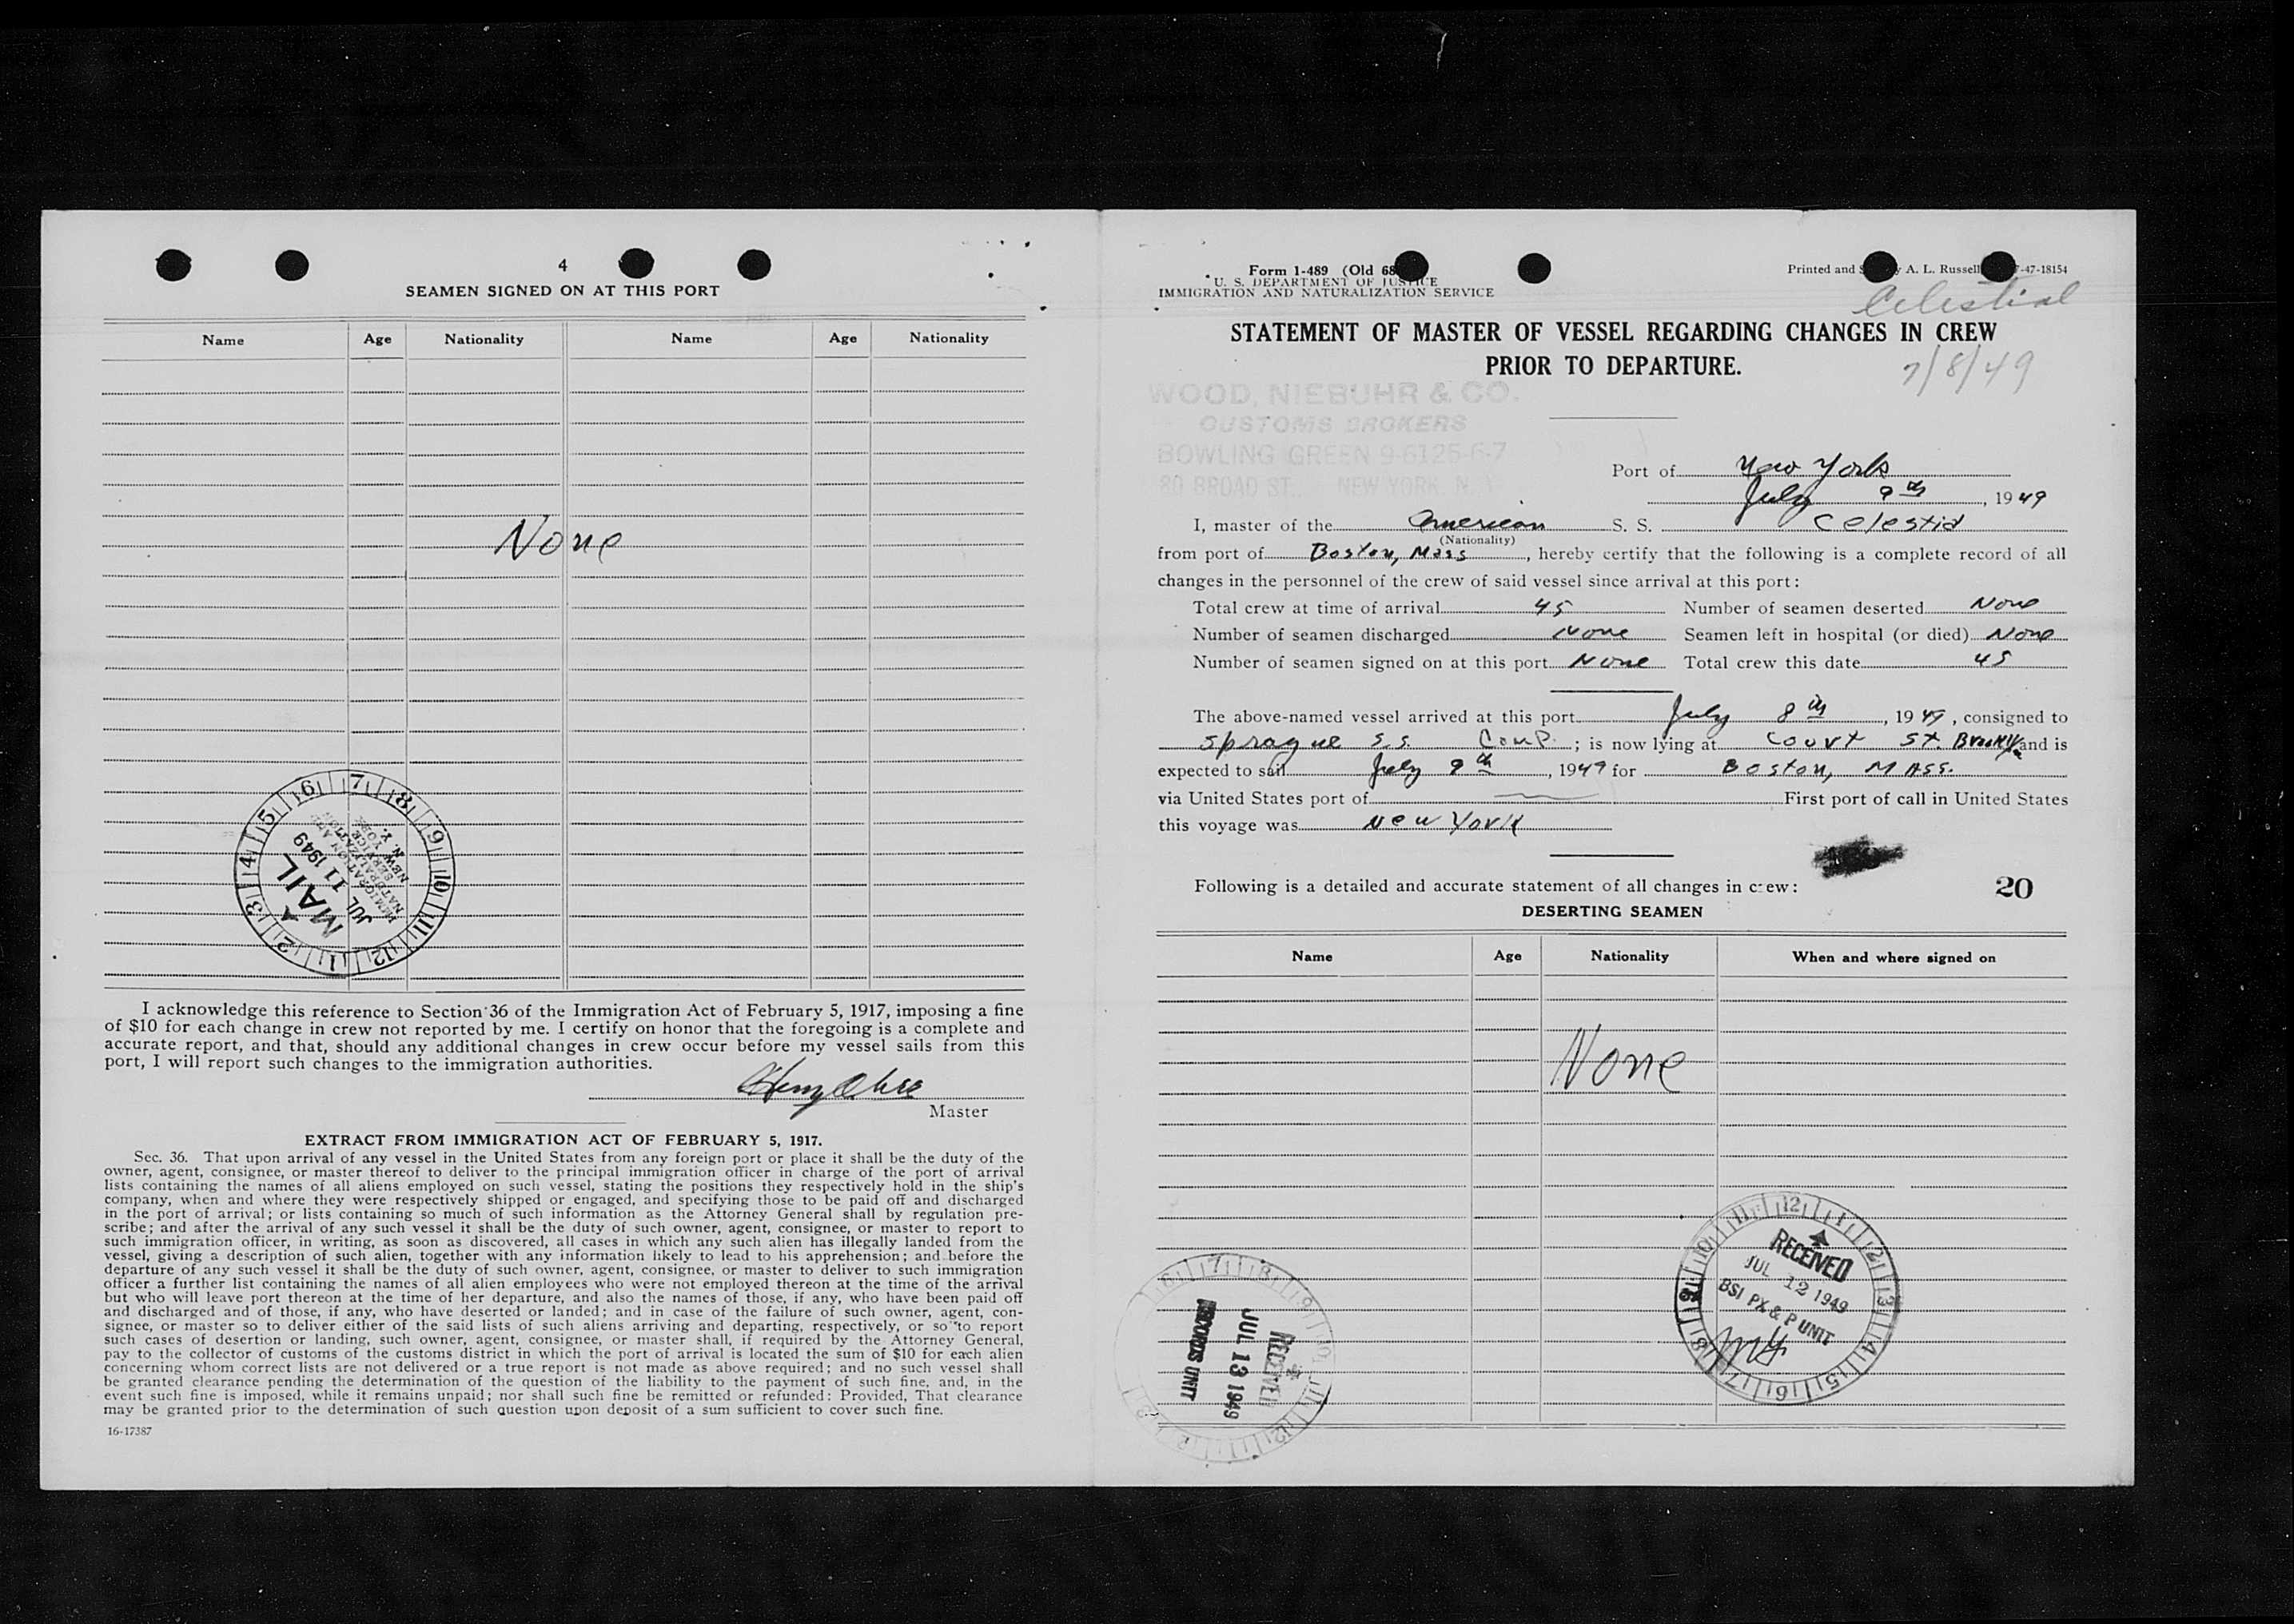 4
SEAMEN SIGNED ON AT THIS PORT
Name Age Nationality Name Age Nationality
None
MAIL
JUL 11 1949
IMMIGRATION AND
NATURALIZATION
SERVICE
NEW YORK
N. Y.
I acknowledge this reference to Section 36 of the Immigration Act of February 5, 1917, imposing a fine
of $10 for each change in crew not reported by me. I certify on honor that the foregoing is a complete and
accurate report, and that, should any additional changes in crew occur before my vessel sails from this
port, I will report such changes to the immigration authorities.
Master
EXTRACT FROM IMMIGRATION ACT OF FEBRUARY 5, 1917.
Sec. 36. That upon arrival of any vessel in the United States from any foreign port or place it shall be the duty of the
owner, agent, consignee, or master thereof to deliver to the principal immigration officer in charge of the port of arrival
lists containing the names of all aliens employed on such vessel, stating the positions they respectively hold in the ship's
company, when and where they were respectively shipped or engaged, and specifying those to be paid off and discharged
in the port of arrival; or lists containing so much of such information as the Attorney General shall by regulation pre-
scribe; and after the arrival of any such vessel it shall be the duty of such owner, agent, consignee, or master to report to
such immigration officer, in writing, as soon as discovered, all cases in which any such alien has illegally landed from the
vessel, giving a description of such alien, together with any information likely to lead to his apprehension; and before the
departure of any such vessel it shall be the duty of such owner, agent, consignee, or master to deliver to such immigration
officer a further list containing the names of all alien employees who were not employed thereon at the time of the arrival
but who will leave port thereon at the time of her departure, and also the names of those, if any, who have been paid off
and discharged and of those, if any, who have deserted or landed; and in case of the failure of such owner, agent, con-
signee, or master so to deliver either of the said lists of such aliens arriving and departing, respectively, or so to report
such cases of desertion or landing, such owner, agent, consignee, or master shall, if required by the Attorney General,
pay to the collector of customs of the customs district in which the port of arrival is located the sum of $10 for each alien
concerning whom correct lists are not delivered or a true report is not made as above required; and no such vessel shall
be granted clearance pending the determination of the question of the liability to the payment of such fine, and, in the
event such fine is imposed, while it remains unpaid; nor shall such fine be remitted or refunded: Provided, That clearance
may be granted prior to the determination of such question upon deposit of a sum sufficient to cover such fine.
16-17387
Form 1-489 (Old 68
U. S. DEPARTMENT OF JUSTICE
IMMIGRATION AND NATURALIZATION SERVICE
Printed and A. L. Russell -47-18154
Celestial
STATEMENT OF MASTER OF VESSEL REGARDING CHANGES IN CREW
PRIOR TO DEPARTURE.
7/8/49
WOOD, NIEBUHR & CO.
CUSTOMS BROKERS
BOWLING GREEN 9-6125-6-7
80 BROAD ST., NEW YORK, N. Y.
Port of New York
July 9th, 1949
I, master of the American S. S. Celestial
(Nationality)
from port of Boston, Mass, hereby certify that the following is a complete record of all
changes in the personnel of the crew of said vessel since arrival at this port:
Total crew at time of arrival 45 Number of seamen deserted None
Number of seamen discharged None Seamen left in hospital (or died) None
Number of seamen signed on at this port None Total crew this date 45
The above-named vessel arrived at this port July 8th, 1949, consigned to
Sprague S.S. Comp.; is now lying at Court St. Brooklyn and is
expected to sail July 9th, 1949 for Boston, Mass.
via United States port of First port of call in United States
this voyage was New York
Following is a detailed and accurate statement of all changes in crew: 20
DESERTING SEAMEN
Name Age Nationality When and where signed on
None
RECEIVED
JUL 12 1949
BSI PX & P UNIT
RECEIVED
JUL 13 1949
RECORDS UNIT